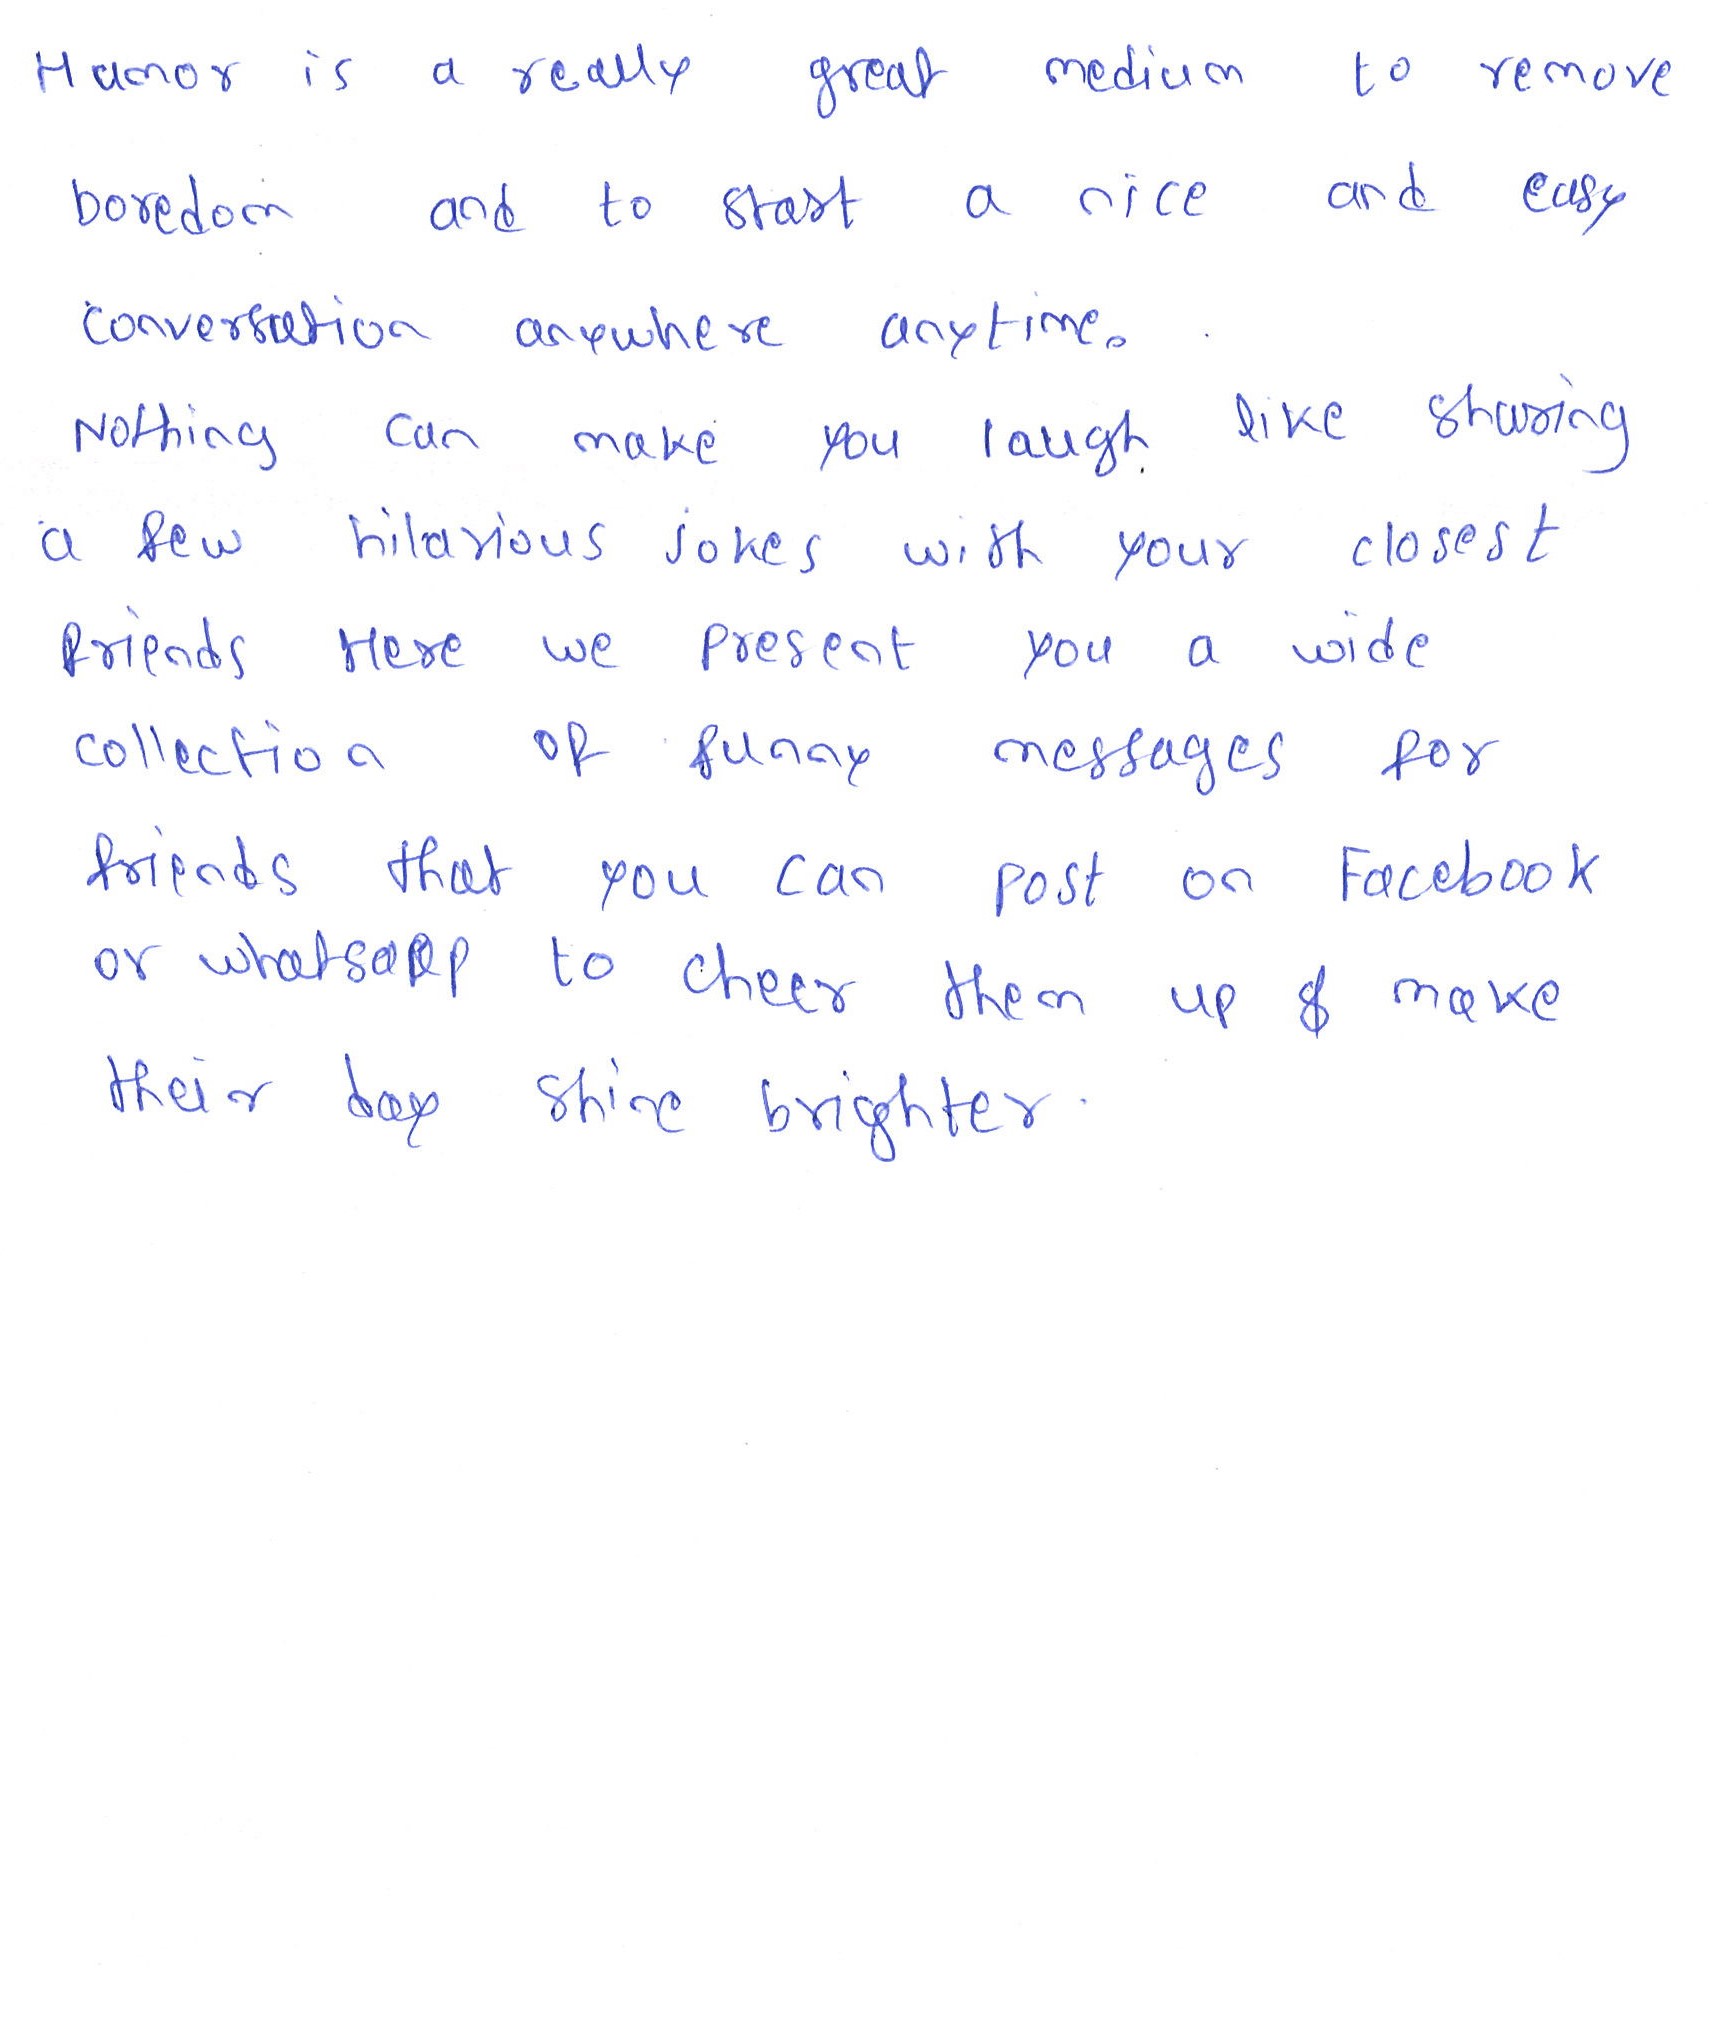 Humor is a really great medium to remove
boredom and to start a nice and easy
conversation anywhere anytime.
Nothing can make you laugh like sharing
a few hilarious jokes with your closest
friends Here we present you a wide
collection of funny messages for
friends that you can post on Facebook
or whatsapp to cheer them up & make
their day shine brighter.